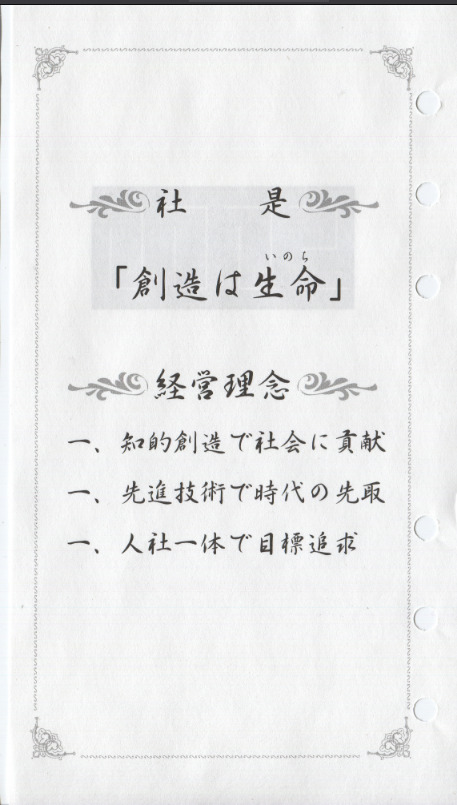 社　　是
いのち
「創造は生命」
経営理念
一、知的創造で社会に貢献
一、先進技術で時代の先取
一、人社一体で目標追求